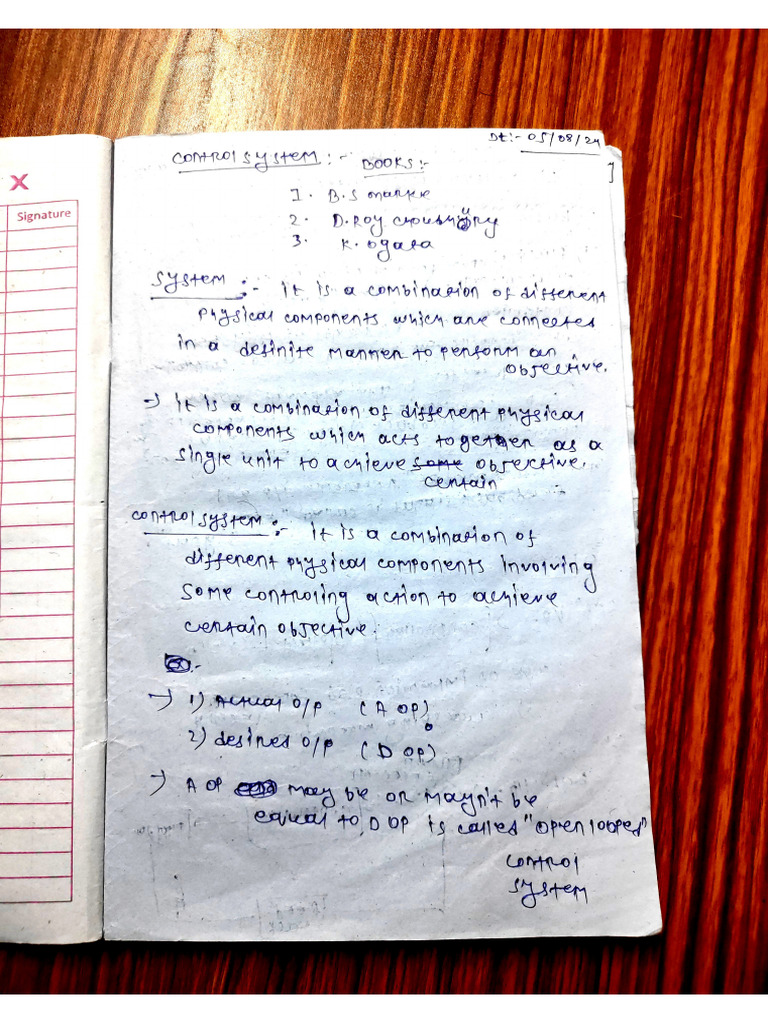 Dt:- 05/08/24
1
X
Signature
CONTROL SYSTEM :-  BOOKS:-
1. B.S manke
2. D. Roy Choudhury
3. K. Ogata
System :- it is a combination of different
physical components which are connected
in a definite manner to perform an
objective.
→ it is a combination of different physical
components which acts together as a
single unit to achieve some objective.
certain
control system :- it is a combination of
different physical components involving
some controling action to achieve
certain objective.
→ 1) Actual O/P (A OP)
2) desired O/P (D OP)
→ A OP may be or mayn't be
equal to D OP is called "open looped"
control
system